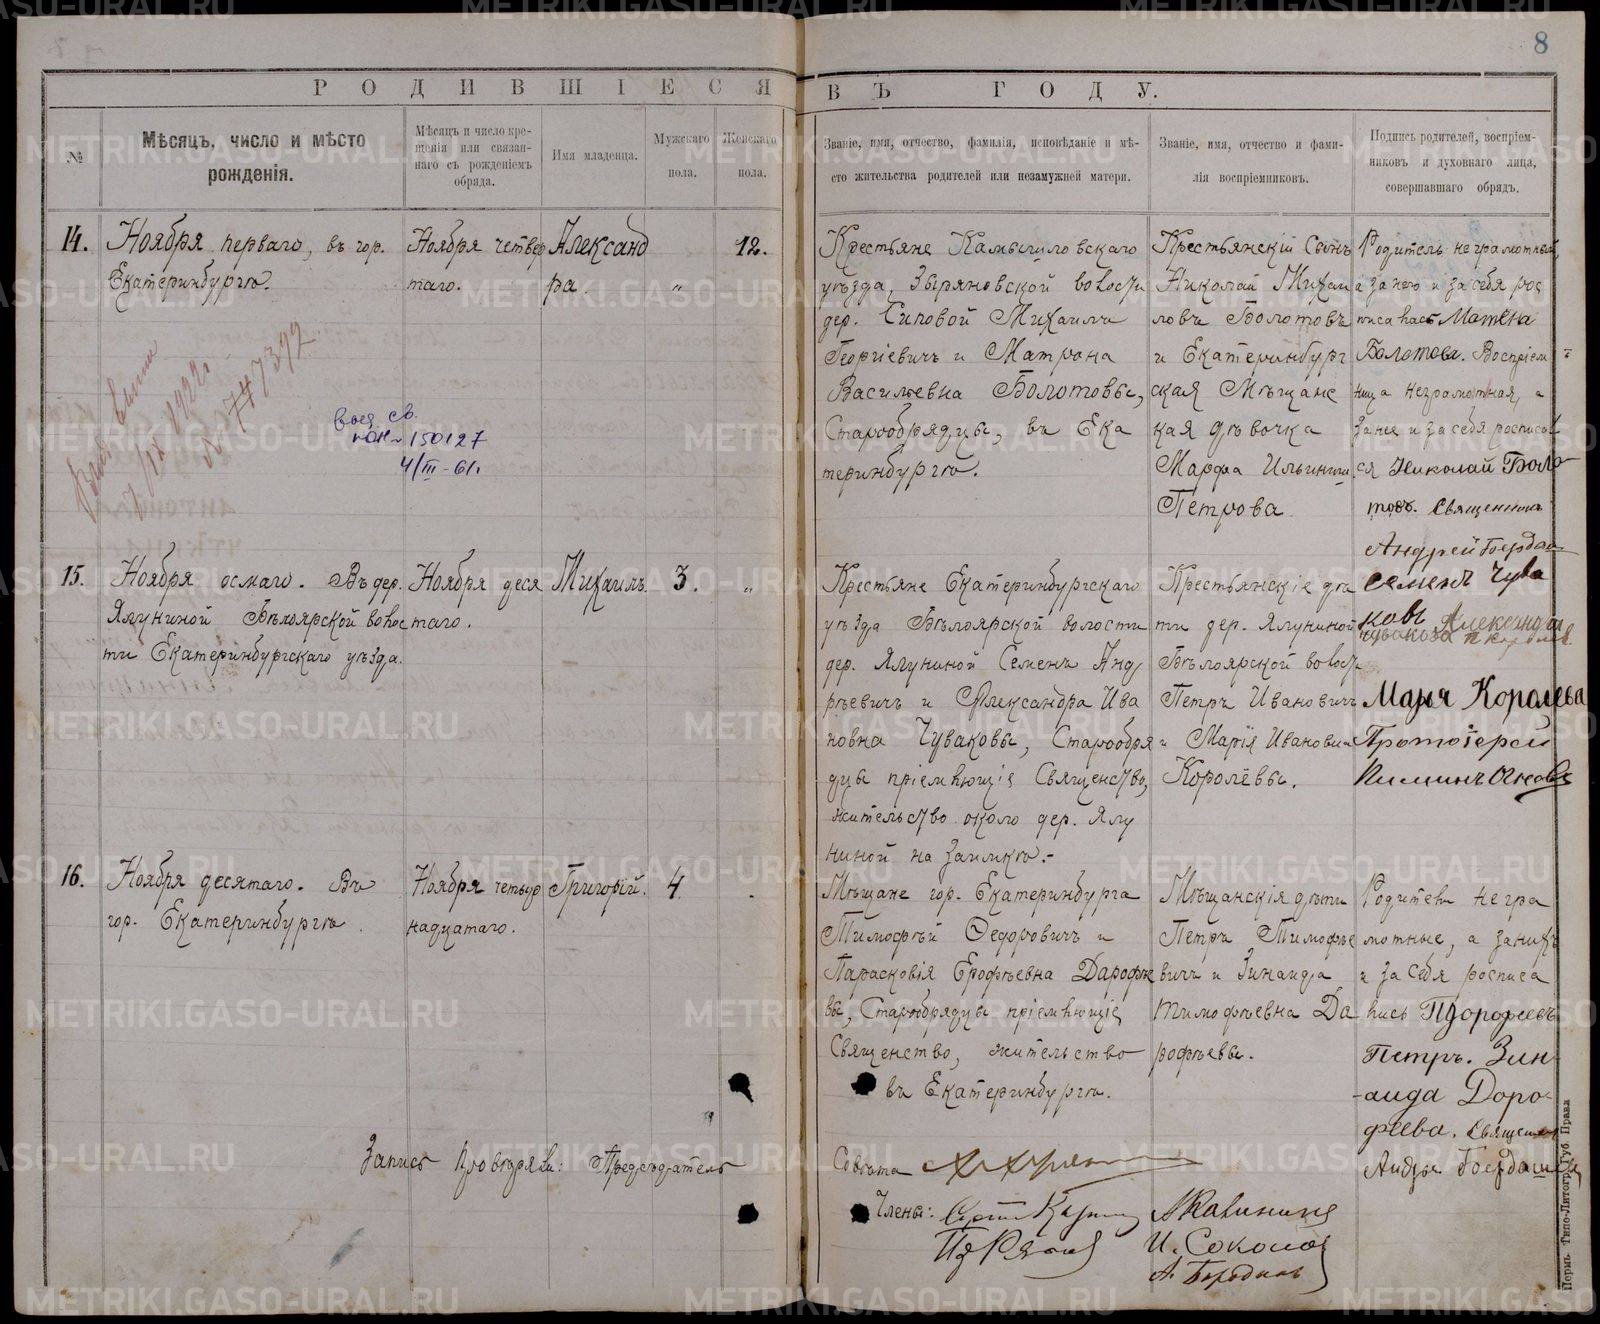 8
РОДИВШІЕСЯ ВЪ ГОДУ.
№
Мѣсяцъ, число и мѣсто
рожденія.
Мѣсяцъ и число кре-
щенія или связан-
наго съ рожденіемъ
обряда.
Имя младенца.
Мужскаго
пола.
Женскаго
пола.
Званіе, имя, отчество, фамилія, исповѣданіе и мѣ-
сто жительства родителей или незамужней матери.
Званіе, имя, отчество и фами-
лія воспріемниковъ.
Подпись родителей, воспріем-
никовъ и духовнаго лица,
совершавшаго обрядъ.
14.
Ноября перваго, въ гор.
Екатеринбургѣ.
Ноября четвер
таго.
Александ
ра.
"
12.
Крестьяне Камышловскаго
уѣзда, Зыряновской волости
дер. Сиповой Михаилъ
Георгіевичъ и Матрона
Васильевна Болотовы,
Старообрядцы, въ Ека
теринбургѣ.
Крестьянскій Сынъ
Николай Михаи
ловъ Болотовъ
и Екатеринбург
ская Мѣщанс
кая дѣвочка
Марфа Ильинич.
Петрова
Родитель неграмотный,
а за него и за себя рос
писалась Матёна
Болотова. Воспріем
ница неграмотная, а
за нея и за себя росписал
ся Николай Боло
товъ. Священникъ
Андрей
1922г.
№ 747392
выд. св.
150127
4/III-61г.
15.
Ноября осмаго. Въ дер.
Ялуниной Бѣлоярской волос
ти Екатеринбургскаго уѣзда.
Ноября деся
таго.
Михаилъ.
3.
"
Крестьяне Екатеринбургскаго
уѣзда Бѣлоярской волости
дер. Ялуниной Семенъ Анд
рѣевичъ и Александра Ива
новна Чуваковы, Старообря
дцы пріемлющіе Священство,
жительство около дер. Ялу
ниной на Заимкѣ.-
Крестьянскіе дѣ
ти дер. Ялуниной
Бѣлоярской волост
Петръ Ивановичъ
и Марія Ивановна
Королёвы.
Семенъ Чува
ковъ Александра
Чувакова П Королев
Марья Королева
Протоіерей
16.
Ноября десятаго. Въ
гор. Екатеринбургѣ.
Ноября четыр
надцатаго.
Григорій.
4.
Мѣщане гор. Екатеринбурга
Тимофѣй Федоровичъ и
Парасковія Ерофѣевна Дарофѣе
вы, Старобрядцы пріемлющіе
Священство, жительство
въ Екатеринбургѣ.
Мѣщанскія дѣти
Петръ Тимофѣе
вичъ и Зинаида
Тимофѣевна Да
рофѣевы.
Родители негра
мотные, а за нихъ
и за себя росписа
лись Пдорофеевъ
Петръ. Зин
-аида Доро-
феева. Священник
Записи провѣряли: Предсѣдатель Совѣта
Члены:
И. Соколов
А. Бородинъ
Пермь. Типо-Литогр. Губ. Правл.
METRIKI.GASO-URAL.RU